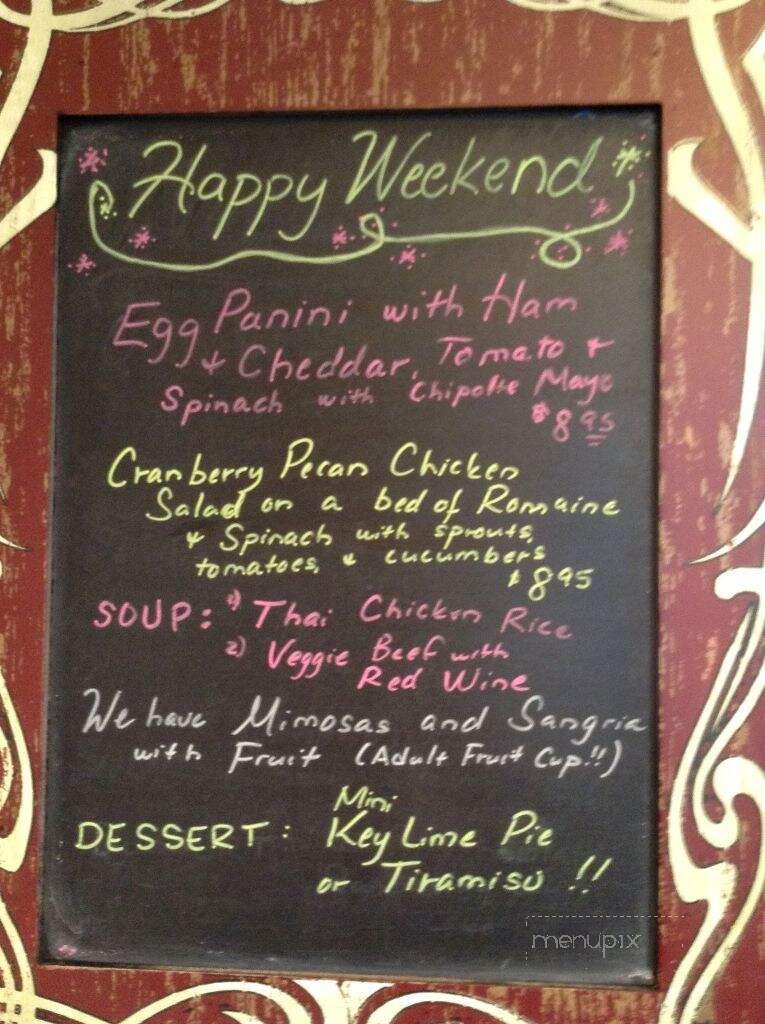 Happy Weekend
Egg Panini with Ham
& Cheddar, Tomato &
Spinach with Chipotle Mayo
$8 95
Cranberry Pecan Chicken
Salad on a bed of Romaine
& Spinach with sprouts,
tomatoes, & cucumbers
$8 95
SOUP: 1) Thai Chicken Rice
2) Veggie Beef with
Red Wine
We have Mimosas and Sangria
with Fruit (Adult Fruit Cup!!)
Mini
DESSERT: Key Lime Pie
or Tiramisu !!
menupix